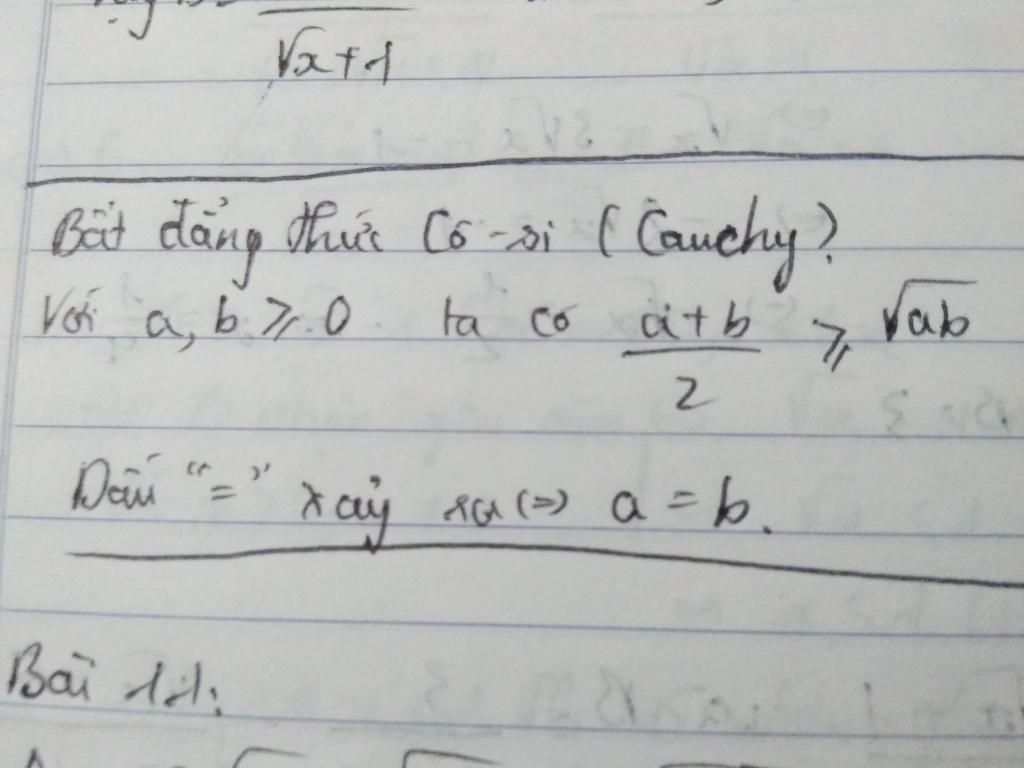 √x+1
Bất đẳng thức Cô-si (Cauchy)
Với a, b ≥ 0 ta có a+b/2 ≥ √ab
Dấu "=" xảy ra (=) a = b.
Bài 11: